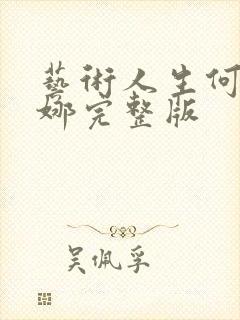 藝術人生何
娜完整版
吴佩孚